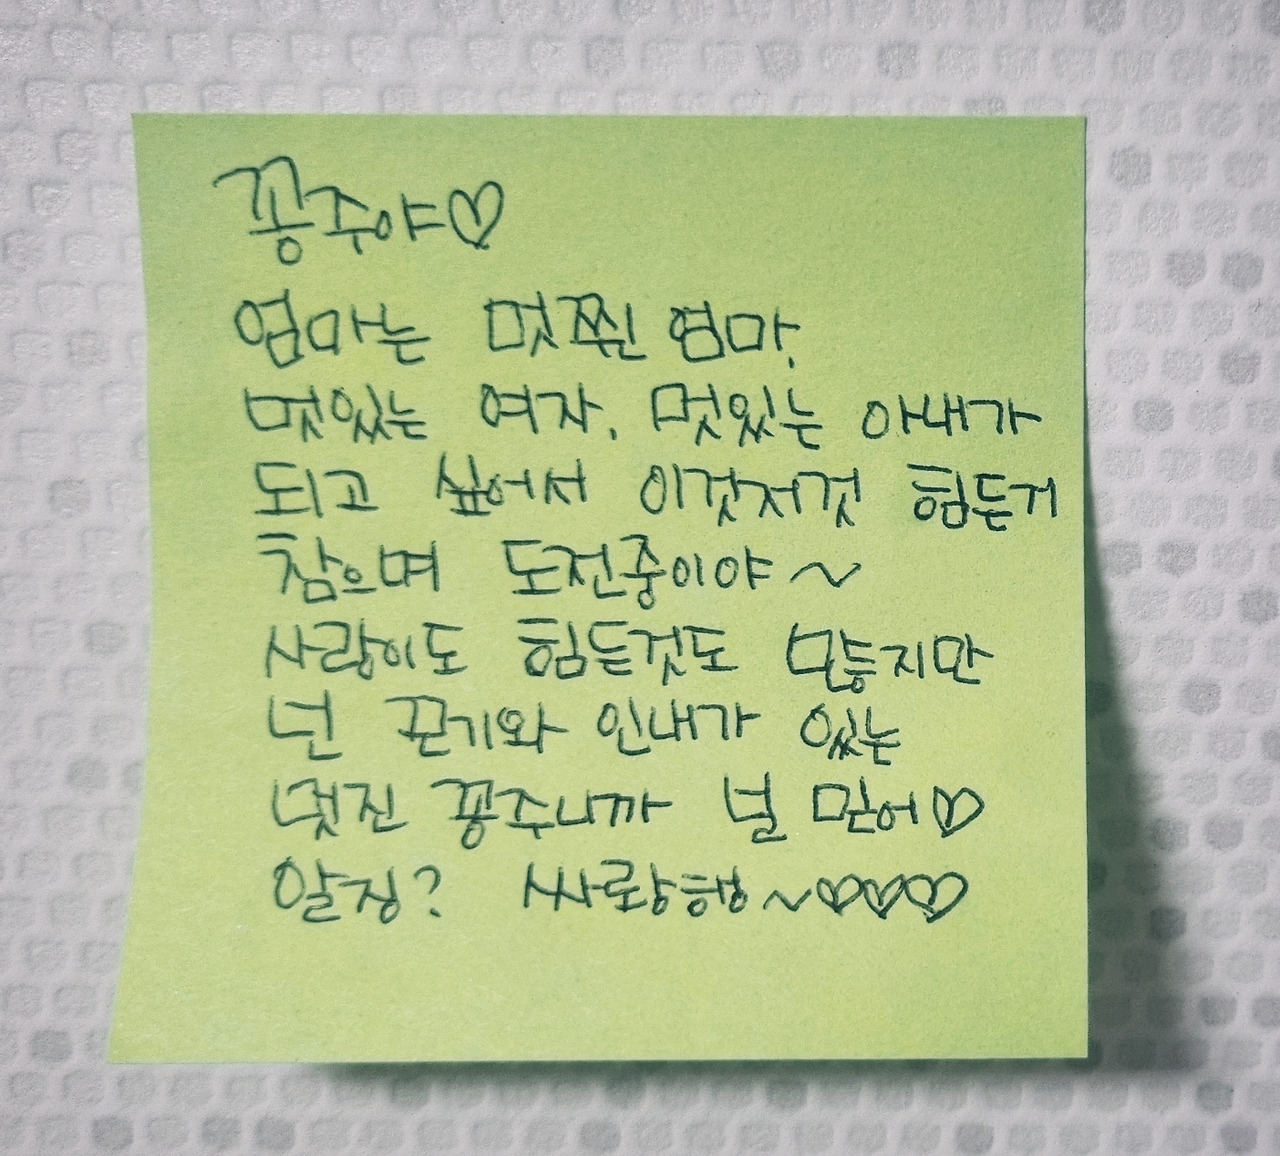 꽁주야♡
엄마는 멋찐 엄마.
멋있는 여자. 멋있는 아내가
되고 싶어서 이것저것 힘든거
참으며 도전중이야~
사랑이도 힘든것도 많지만
넌 끈기와 인내가 있는
멋진 꽁주니까 널 믿어♡
알징? 싸랑행~♡♡♡